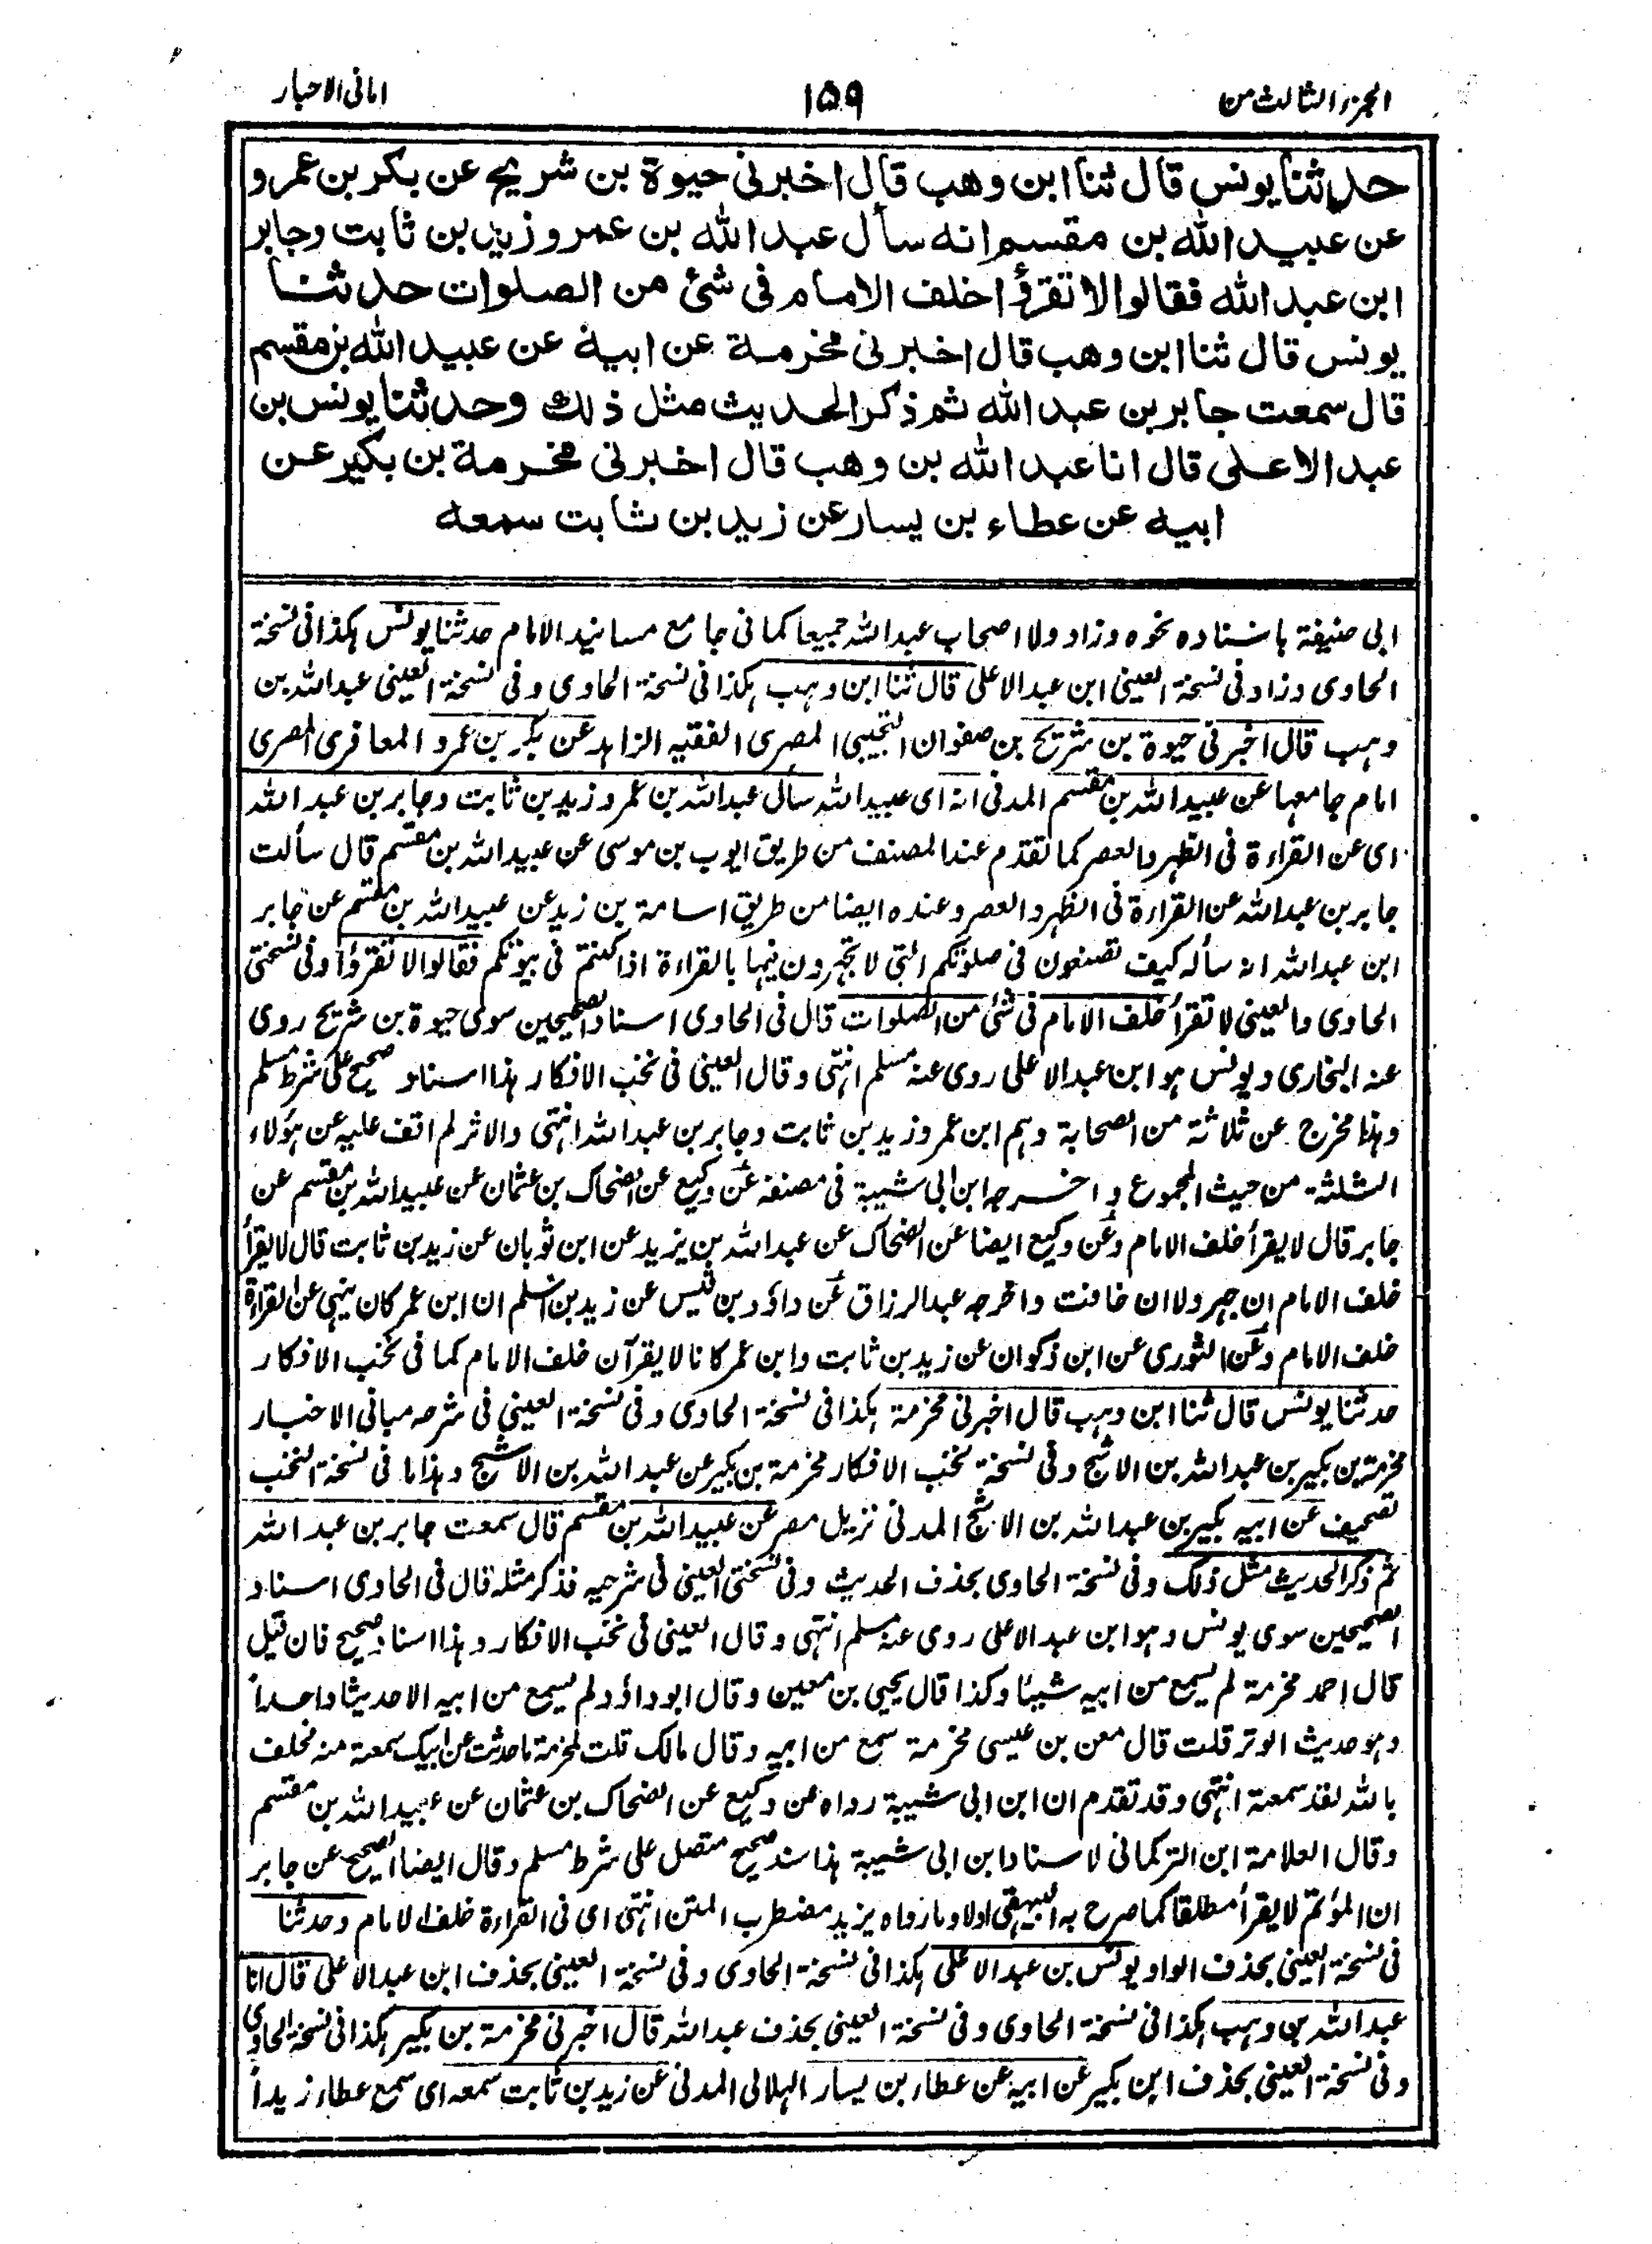 الجزء الثالث من
۱۵۹
امانی الاحبار
حدثنا یونس قال ثنا ابن وهب قال اخبرنی حیوة بن شریح عن بکر بن عمرو
عن عبید الله بن مقسم انه سأل عبد الله بن عمر و زید بن ثابت وجابر
ابن عبد الله فقالوا لا تقرؤا خلف الامام فی شئ من الصلوات حدثنا
یونس قال ثنا ابن وهب قال اخبرنی مخرمة عن ابیه عن عبید الله بن مقسم
قال سمعت جابر بن عبد الله ثم ذکر الحدیث مثل ذلك وحدثنا یونس بن
عبد الاعلی قال انا عبد الله بن وهب قال اخبرنی مخرمة بن بکیر عن
ابیه عن عطاء بن یسار عن زید بن ثابت سمعه
ابی حنیفة باسناده نحوه وزاد ولا اصحاب عبد الله جمیعا کما فی جامع مسانید الامام حدثنا یونس هکذا فی نسخة
الحاوی وزاد فی نسخة العینی ابن عبد الاعلی قال ثنا ابن وهب هکذا فی نسخة الحاوی وفی نسخة العینی عبد الله بن
وهب قال اخبرنی حیوة بن شریح بن صفوان التجیبی المصری الفقیه الزاهد عن بکر بن عمرو المعافری المصری
امام جامعها عن عبید الله بن مقسم المدنی انه ای عبید الله سأل عبد الله بن عمر و زید بن ثابت وجابر بن عبد الله
ای عن القراءة فی الظهر والعصر کما تقدم عند المصنف من طریق ایوب بن موسی عن عبید الله بن مقسم قال سألت
جابر بن عبد الله عن القراءة فی الظهر والعصر وعنده ایضا من طریق اسامة بن زید عن عبید الله بن مقسم عن جابر
ابن عبد الله انه سأله کیف تصنعون فی صلوتکم التی لا تجهرون فیها بالقراءة اذا کنتم فی بیوتکم فقالوا لا تقرؤا وفی نسختی
الحاوی والعینی لا تقرأ خلف الامام فی شئ من الصلوات قال فی الحاوی اسناد الصحیحین سوی حیوة بن شریح روی
عنه البخاری ویونس هو ابن عبد الاعلی روی عنه مسلم انتهی وقال العینی فی نخب الافکار هذا اسناد صحیح علی شرط مسلم
وهذا مخرج عن ثلاثة من الصحابة وهم ابن عمر وزید بن ثابت وجابر بن عبد الله انتهی والاثر لم اقف علیه عن هؤلاء
الثلثة من حیث المجموع واخرجه ابن ابی شیبة فی مصنفه عن وکیع عن الضحاک بن عثمان عن عبید الله بن مقسم عن
جابر قال لا یقرأ خلف الامام وعن وکیع ایضا عن الضحاک عن عبد الله بن یزید عن ابن ثوبان عن زید بن ثابت قال لا یقرأ
خلف الامام ان جهر ولا ان خافت واخرجه عبد الرزاق عن داؤد بن قیس عن زید بن اسلم ان ابن عمر کان ینهی عن القراءة
خلف الامام وعن الثوری عن ابن ذکوان عن زید بن ثابت وابن عمر کانا لا یقرآن خلف الامام کما فی نخب الافکار
حدثنا یونس قال ثنا ابن وهب قال اخبرنی مخرمة هکذا فی نسخة الحاوی وفی نسخة العینی فی شرحه مبانی الاخبار
مخرمة بن بکیر بن عبد الله بن الاشج وفی نسخة نخب الافکار مخرمة بن بکیر عن عبد الله بن الاشج وهذا ما فی نسخة النخب
تصحیف عن ابیه بکیر بن عبد الله بن الاشج المدنی نزیل مصر عن عبید الله بن مقسم قال سمعت جابر بن عبد الله
ثم ذکر الحدیث مثل ذلک وفی نسخة الحاوی بحذف الحدیث وفی نسختی العینی فی شرحیه فذکر مثله قال فی الحاوی اسناد
الصحیحین سوی یونس وهو ابن عبد الاعلی روی عنه مسلم انتهی وقال العینی فی نخب الافکار وهذا اسناد صحیح فان قیل
قال احمد مخرمة لم یسمع من ابیه شیئا وکذا قال یحیی بن معین وقال ابو داؤد لم یسمع من ابیه الا حدیثا واحداً
وهو حدیث الوتر قلت قال معن بن عیسی مخرمة سمع من ابیه وقال مالک قلت لمخرمة ما حدثت عن ابیک سمعته منه فحلف
بالله لقد سمعته انتهی وقد تقدم ان ابن ابی شیبة رواه عن وکیع عن الضحاک بن عثمان عن عبید الله بن مقسم
وقال العلامة ابن الترکمانی لاسناد ابن ابی شیبة هذا سند صحیح متصل علی شرط مسلم وقال ایضا الصحیح عن جابر
ان المؤتم لا یقرأ مطلقا کما صرح به البیهقی اولا وما رواه یزید مضطرب المتن انتهی ای فی القراءة خلف الامام وحدثنا
فی نسخة العینی بحذف الواو یونس بن عبد الاعلی هکذا فی نسخة الحاوی وفی نسخة العینی بحذف ابن عبد الاعلی قال انا
عبد الله بن وهب هکذا فی نسخة الحاوی وفی نسخة العینی بحذف عبد الله قال اخبرنی مخرمة بن بکیر هکذا فی نسخة الحاوی
وفی نسخة العینی بحذف ابن بکیر عن ابیه عن عطاء بن یسار الهلالی المدنی عن زید بن ثابت سمعه ای سمع عطاء زیداً